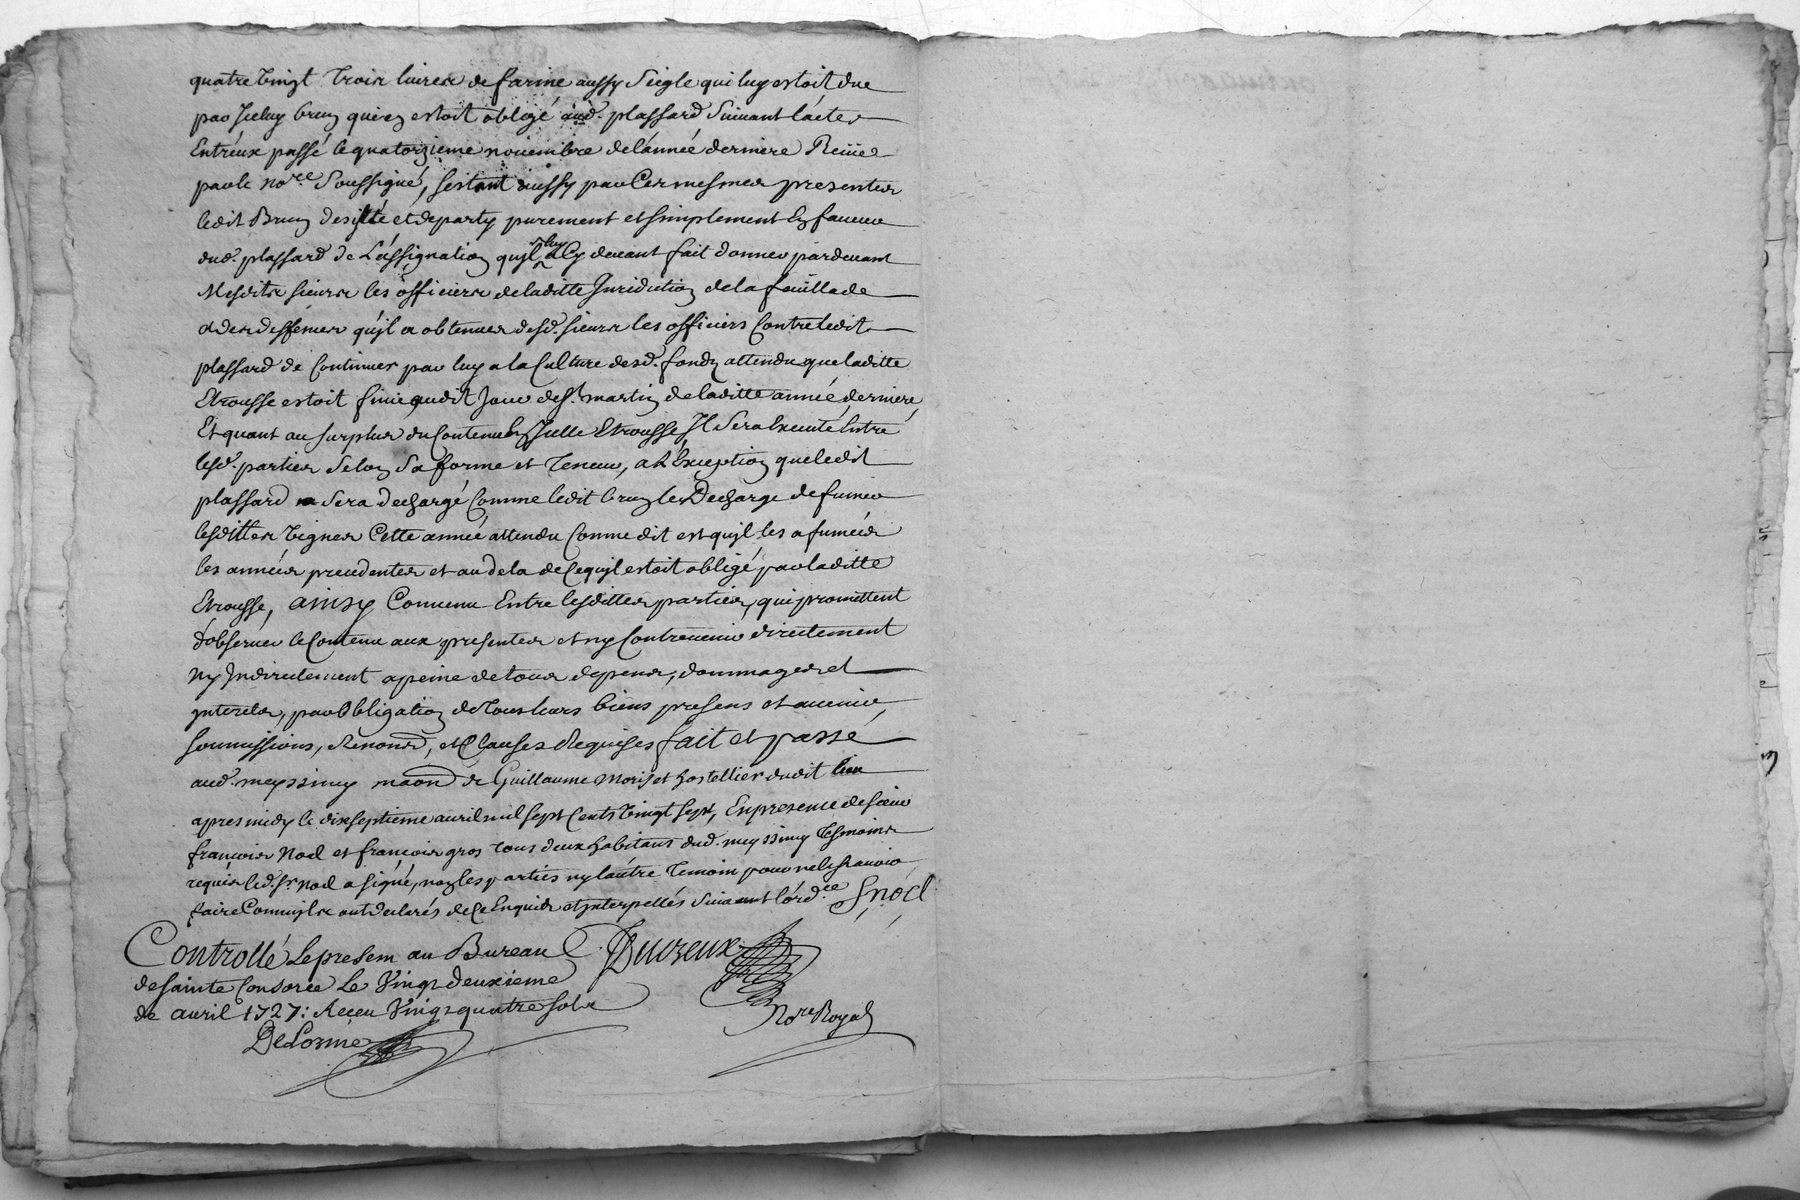 quatre vingt trois livres de farine aussy seigle qui luy estoit due
par iceluy brun qui en estoit obligé aud. plassard suivant l'acte
Entr'eux passé le quatorzieme novembre de l'année derniere Reçue
par le no.re Soussigné, sestant aussy par ces mesmes presentes
ledit Brun desisté et departy purement et simplement En faveur
dud. plassard de L'assignation qu'jl luy a Cy devant fait donner pardevant
Mesdits sieurs les officiers de laditte Juridiction de la feuillade
& des deffences qu'jl a obtenues desd. sieurs les officiers Contre ledit
plassard de Continuer par luy a la Culture desd. fonds attendu que laditte
Etrousse estoit finie audit Jour de St. martin de laditte année derniere,
Et quant au surplus du Contenu En Jcelle Etrousse Jl Sera Executé Entre
lesd. parties Selon Sa forme et Teneur, a L'Exception que ledit
plassard Sera dechargé Comme ledit brun le Decharge de fumer
lesdittes vignes Cette année attendu Comme dit est qu'jl les a fumées
les années precedentes et au dela de Ce qu'jl estoit obligé par laditte
Etrousse, ainsy Convenu Entre lesdittes parties, qui promettent
d'observer le Contenu aux presentes et ny Contrevenir directement
ny Jndirectement a peine de tous depens, dommages et
jnterets, par Obligation de Tous leurs biens presens et avenir,
soumissions, Renond, et Clauses Requises fait et passé
aud. meyssimy maon de Guillaume Moriset hostellier dudit lieu
apres midy le dix septieme avril mil sept Cents vingt sept, En presence de sieur
francois Noel et francois gros tous deux habitans dud. meyssimy Tesmoins
requis led. Sr. Noel a signé, non les parties ny l'autre Temoin pour ne le scavoir
faire Comm'jls ont declarés de Ce Enquis et jnterpellés suivant l'ord.ce Fnoel
Controllé Le presem au Bureau Duvreux
de Sainte Consorce Le Vingt deuxieme
de avril 1727: Receu Vingt quatre sols No.re Royal
DeLorme